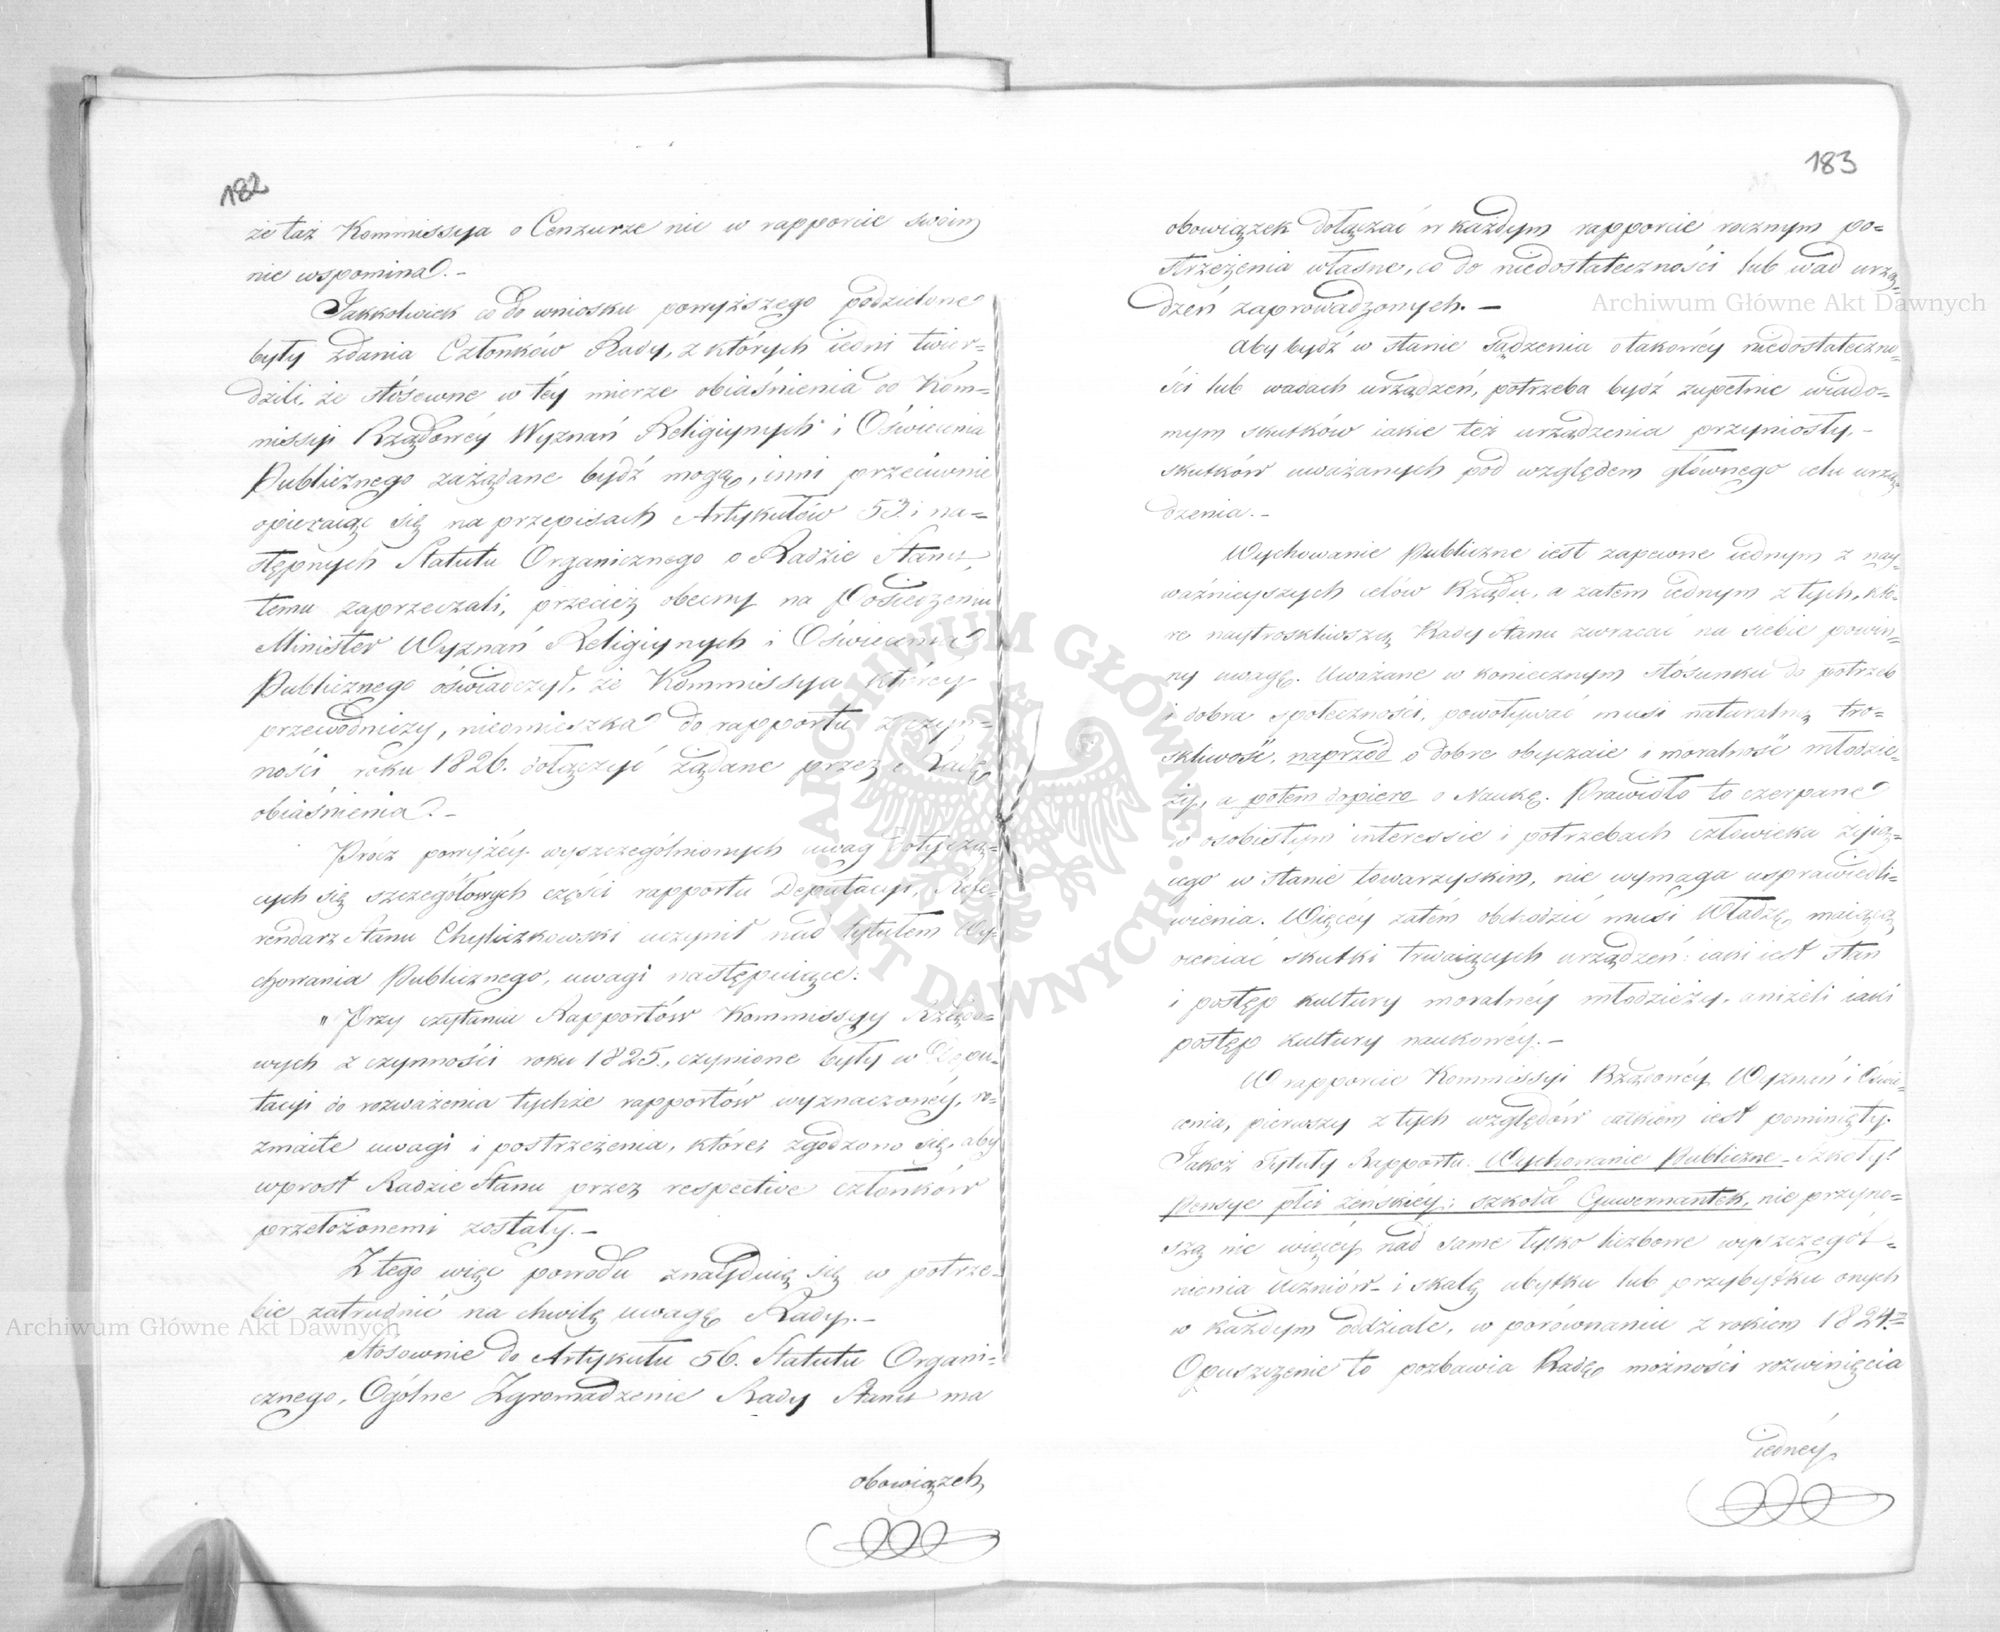 182
że taż Kommissyja o Cenzurze nic w rapporcie swoim
nie wspomina. –
Jakkolwiek co do wniosku powyższego podzielone
były zdania Członków Rady, z których iedni twier-
dzili, że stósowne w téy mierze obiaśnienia od Kom-
missyi Rządowéy Wyznań Religiynych i Oświecenia
Publicznego zażądane bydź mogą, inni przeciwnie
opieraiąc się na przepisach Artykułów 53 i na-
stępnych Statutu Organicznego o Radzie Stanu,
temu zaprzeczali, przecież obecny na Posiedzeniu
Minister Wyznań Religiynych i Oświecenia
Publicznego oświadczył, że Kommissya któréy
przewodniczy, nieomieszka do rapportu z czyn-
ności roku 1826. dołączyć żądane przez Radę
obiaśnienia. –
Prócz powyżéy wyszczególnionych uwag dotyczą-
cych się szczegółowych części rapportu Deputacyi, Refe-
rendarz Stanu Chyliczkowski uczynił nad tytułem Wy-
chowania Publicznego, uwagi następuiące:
„Przy czytaniu Rapportów Kommissyy Rządo-
wych z czynności roku 1825., czynione były w Depu-
tacyi do rozważenia tychże rapportów wyznaczonéy, ro-
zmaite uwagi i postrzeżenia, które zgodzono się, aby
wprost Radzie Stanu przez respective członków
przełożonemi zostały. –
Z tego więc powodu znayduię się w potrze-
bie zatrudnić na chwilę uwagę Rady. –
Stosownie do Artykułu 56. Statutu Organi-
cznego, Ogólne Zgromadzenie Rady Stanu ma
obowiązek
183
obowiązek dołączać w każdym rapporcie rocznym po-
strzeżenia własne, co do niedostateczności lub wad urzą-
dzeń zaprowadzonych. –
Aby bydź w stanie sądzenia o takowéy niedostateczno-
ści lub wadach urządzeń, potrzeba bydź zupełnie wiado-
mym skutków iakie też urządzenia przyniosły, –
skutków uważanych pod względem głównego celu urzą-
dzenia. –
Wychowanie Publiczne iest zapewne iednym z nay-
ważnieyszych celów Rządu, a zatem iednym z tych, któ-
re naytroskliwszą Rady Stanu zwracać na siebie powin-
ny uwagę. Uważane w koniecznym stósunku do potrzeb
i dobra społeczności, powoływać musi naturalną tro-
skliwość, naprzód o dobre obyczaie i moralność młodzie-
ży, a potem dopiero o Naukę. Prawidło to czerpane
w osobistym interessie i potrzebach człowieka żyią-
cego w stanie towarzyskim, nie wymaga usprawiedli-
wienia. Więcéy zatém obchodzić musi Władzę maiącą
oceniać skutki trwaiących urządzeń: iaki iest stan
i postęp kultury moralnéy młodzieży, aniżeli iaki
postęp kultury naukowéy. –
W rapporcie Kommissyi Rządowéy Wyznań i Oświe-
cenia, pierwszy z tych względów całkiem iest pominięty.
Jakoż tytuły Rapportu: Wychowanie Publiczne – Szkoły:
Pensye płci żeńskiéy; szkoła Guwernantek, nie przyno-
szą nic więcéy nad same tylko liczbowe wyszczegól-
nienia Uczniów – i skalę ubytku lub przybytku onych
w każdym oddziale, w porównaniu z rokiem 1824.m
Opuszczenie to pozbawia Radę możności rozwinięcia
iednéy
Archiwum Główne Akt Dawnych
Archiwum Główne Akt Dawnych
ARCHIWUM GŁÓWNE AKT DAWNYCH